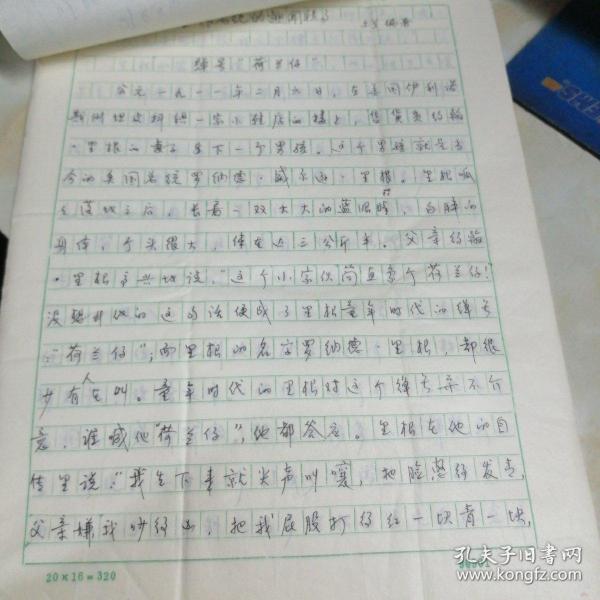 绰号"荷兰仔"
公元一九一一年二月六日，在美国伊利诺
斯州坦皮科镇一家小鞋店的楼上，售货员约翰
·里根的妻子生下一个男孩。这个男孩就是当
今的美国总统罗纳德·威尔逊·里根。里根呱
呱落地之后，长着一双大大的蓝眼睛，白胖的
身体，个头很大，体重近三公斤半。父亲约翰
·里根高兴地说："这个小家伙简直象个荷兰仔！"
没想到他的这句话便成了里根童年时代的绰号
"荷兰仔"；而里根的名字罗纳德·里根，都很
少有人在叫。童年时代的里根对这个绰号并不介
意，谁喊他"荷兰仔"，他都答应。里根在他的自
传里说："我生下来就尖声叫嚷，把脸憋得发青，
父亲嫌我吵得凶，把我屁股打得红一块青一块，
20×16＝320
孔夫子旧书网
www.kongfz.com